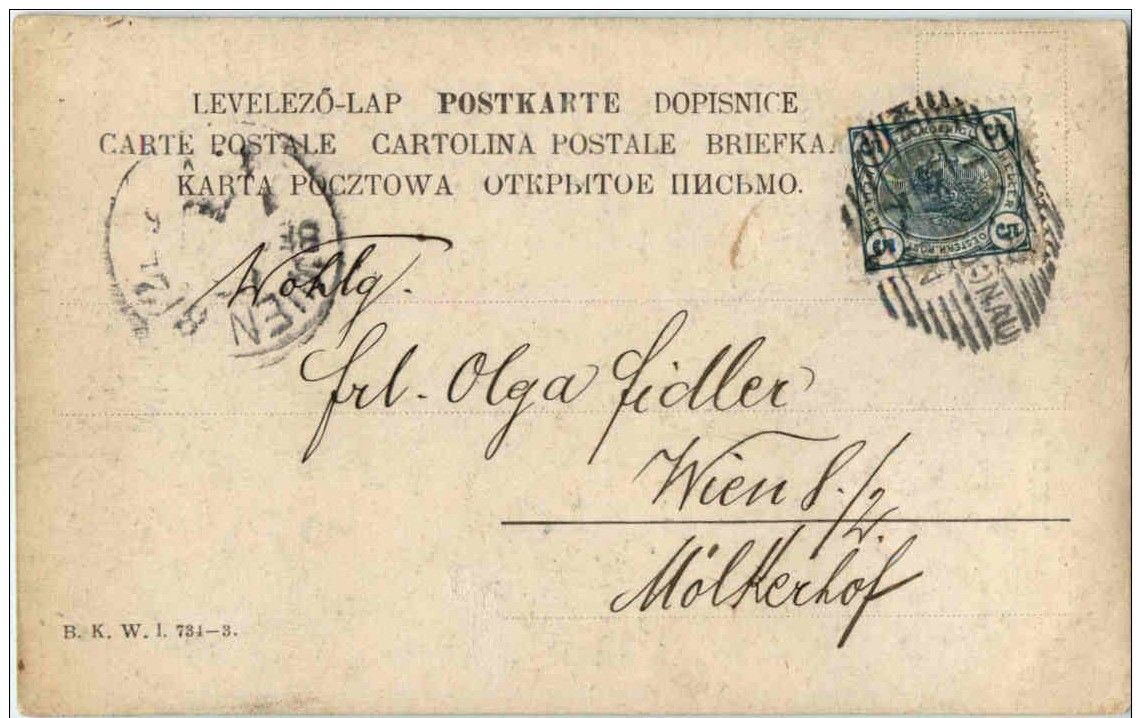 LEVELEZŐ-LAP POSTKARTE DOPISNICE
CARTE POSTALE CARTOLINA POSTALE BRIEFKA
KARTA POCZTOWA ОТКРЫТОЕ ПИСЬМО.
5 5
5 5
WIEN
Wohlg.
Frl. Olga Fidler
Wien 8./2.
Mölkerhof
B. K. W. I. 734-3.